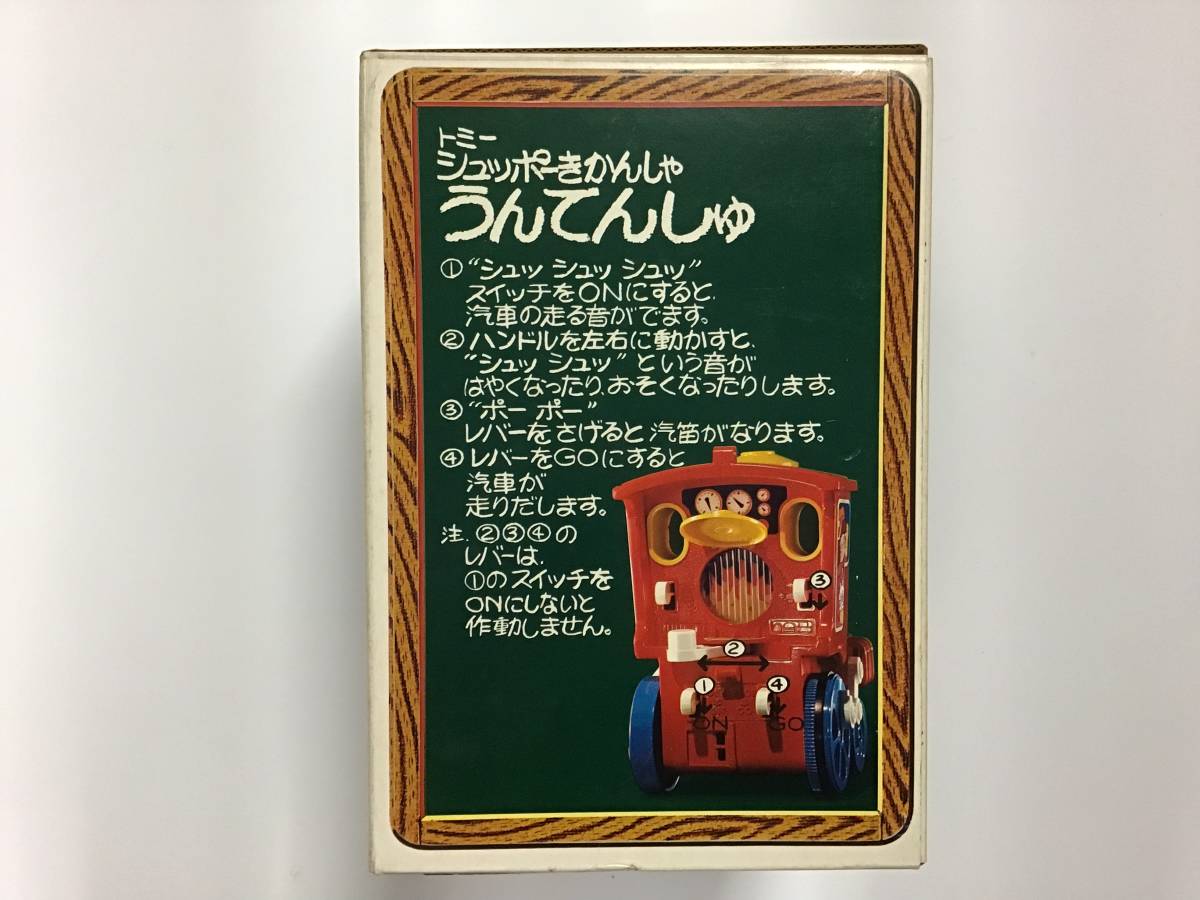 トミー
シュッポーきかんしゃ
うんてんしゅ
①“シュッ シュッ シュッ”
スイッチをONにすると、
汽車の走る音がでます。
②ハンドルを左右に動かすと、
“シュッ シュッ”という音が
はやくなったり、おそくなったりします。
③“ポー ポー”
レバーをさげると汽笛がなります。
④レバーをGOにすると
汽車が
走りだします。
注.②③④の
レバーは、
①のスイッチを
ONにしないと
作動しません。
③
②
① ④
ON GO